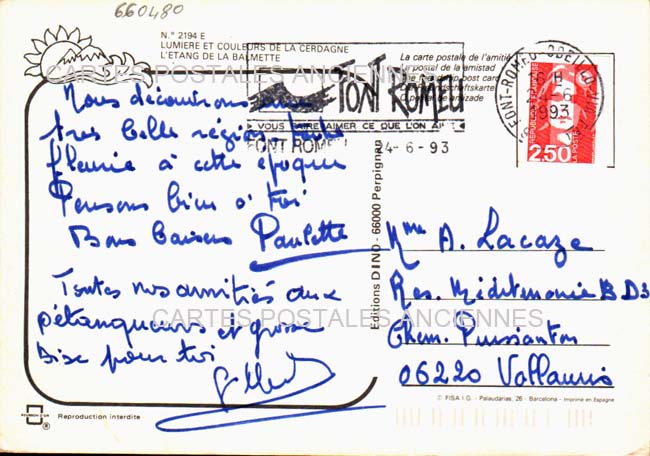 660480
N.° 2194 E
LUMIERE ET COULEURS DE LA CERDAGNE
L'ETANG DE LA BALMETTE
La carte postale de l'amitié
La postal de la amistad
The friendship post card
Die Freundschaftskarte
O postal de amizade
FONT ROMEU
VOUS FAIRE AIMER CE QUE L'ON AIME
FONT ROMEU 24-6-93
FONT-ROMEU-ODEILLO
16 H
24-6
1993
2,50
LA POSTE
CARTES POSTALES ANCIENNES
Nous découvrons une
très belle région, toute
fleurie à cette époque
Pensons bien à toi
Bons baisers Paulette
Toutes nos amitiés aux
pétanqueurs et grosse
bise pour toi
Editions DINO - 66000 Perpignan
Mme A. Lacaze
Res. Méditerranie B D3
Chem.
06220 Vallauris
CARTES POSTALES ANCIENNES
® Reproduction interdite
© FISA I.G. - Palaudarias, 26 - Barcelona - Imprimé en Espagne